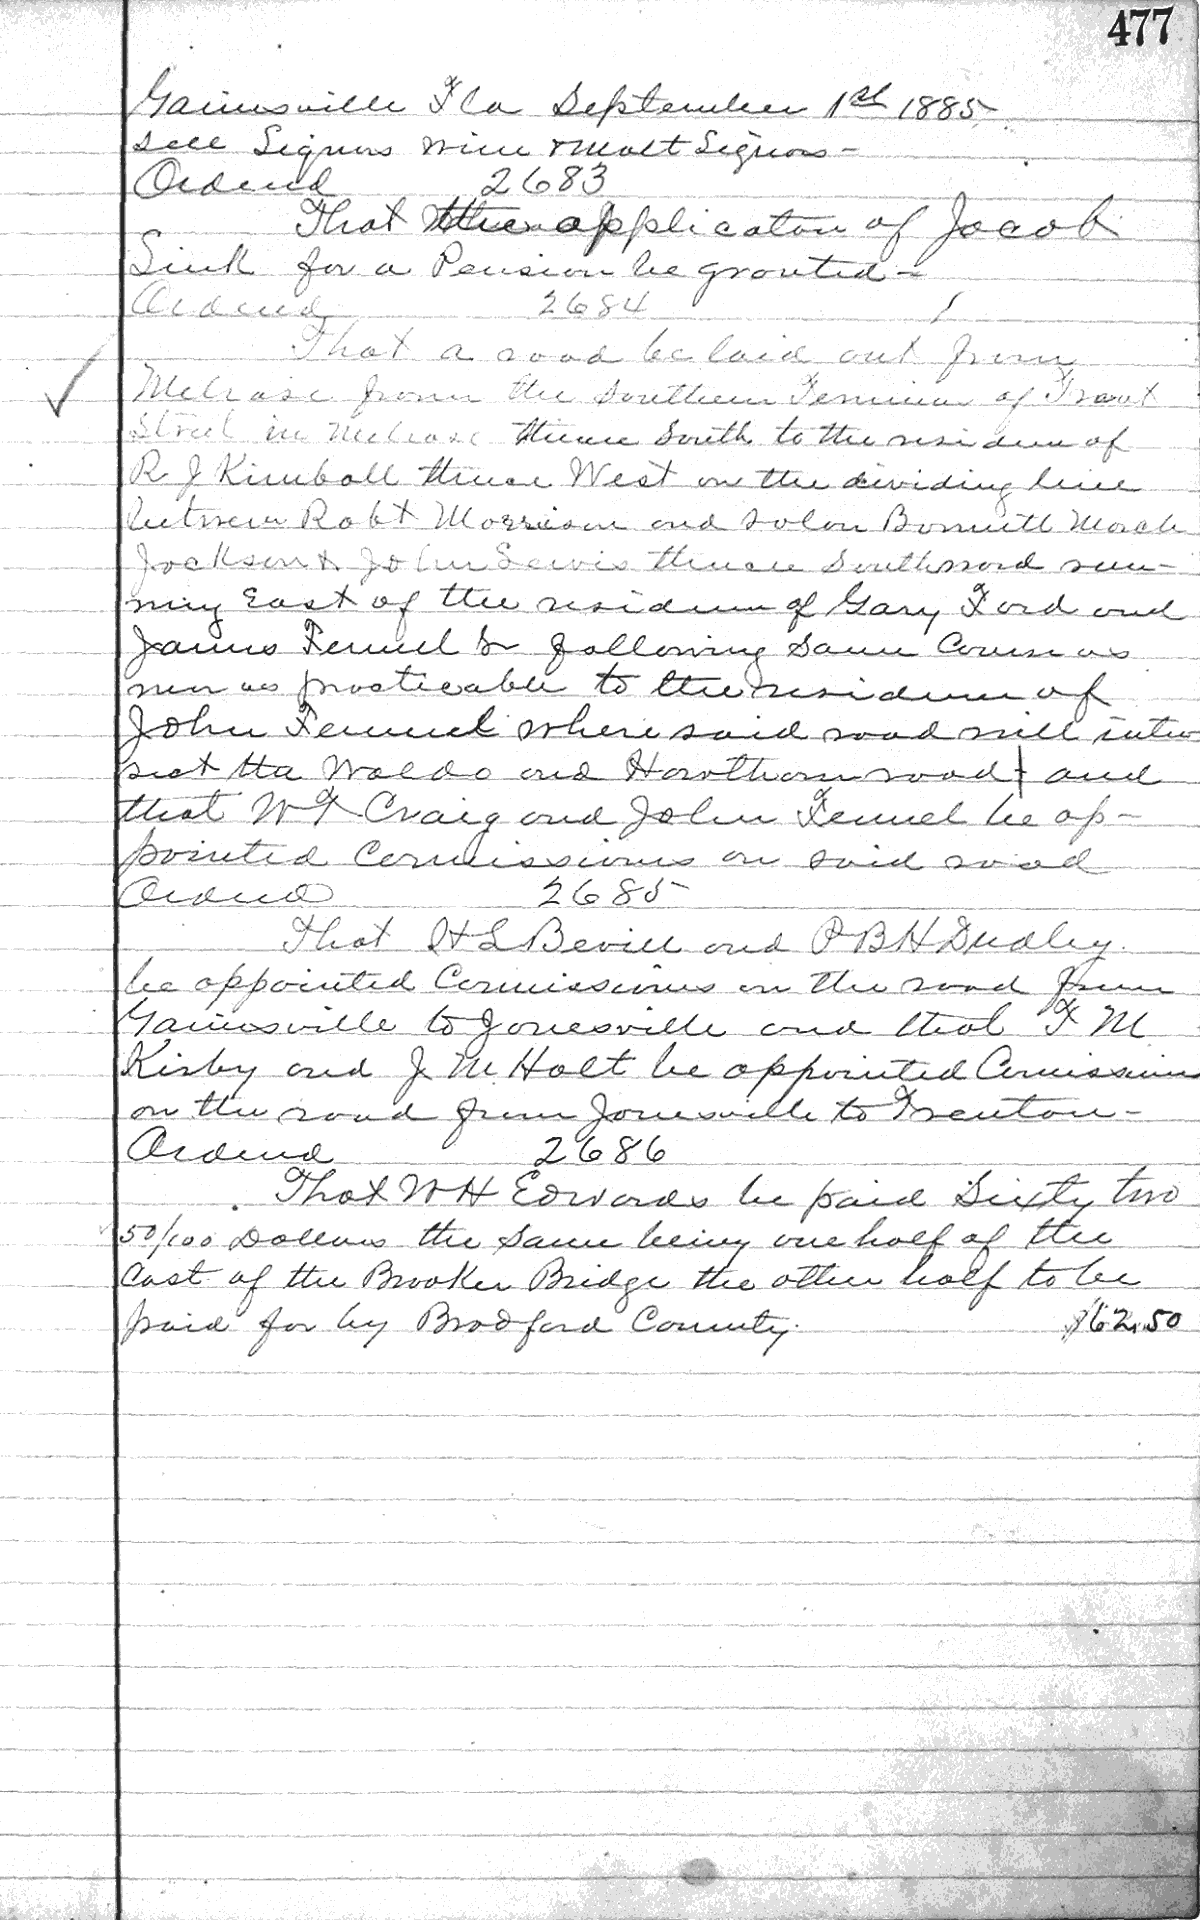 477
Gainesville Fla September 1st 1885
sell Liquors wine & malt Liquors -
Ordered 2683
That the application of Jacob
Sink for a Pension be granted -
Ordered 2684
That a road be laid out from
Melrose from the Southern Terminus of Trout
Street in Melrose thence South to the residence of
R J Kimball thence West on the dividing line
between Robt Morrison and Solon Bonnett
Jackson & John Lewis thence Southward run-
ning East of the residence of Gary Ford and
James Fennel Sr following same Course as
near as practicable to the residence of
John Fennel where said road will inter
sect the Waldo and Hawthorn road and
that W T Craig and John Fennel be ap-
pointed Comissiones on said road
Ordered 2685
That H L Bevill and P B H Dudley
be appointed Comissioners on the road from
Gainesville to Jonesville and that F M
Kirby and J. M. Holt be appointed Comissioners
on the road from Jonesville to Trenton -
Ordered 2686
That W H Edwards be paid Sixty two
50/100 Dollars the same being one half of the
Cost of the Brooker Bridge the other half to be
paid for by Bradford County. $62.50